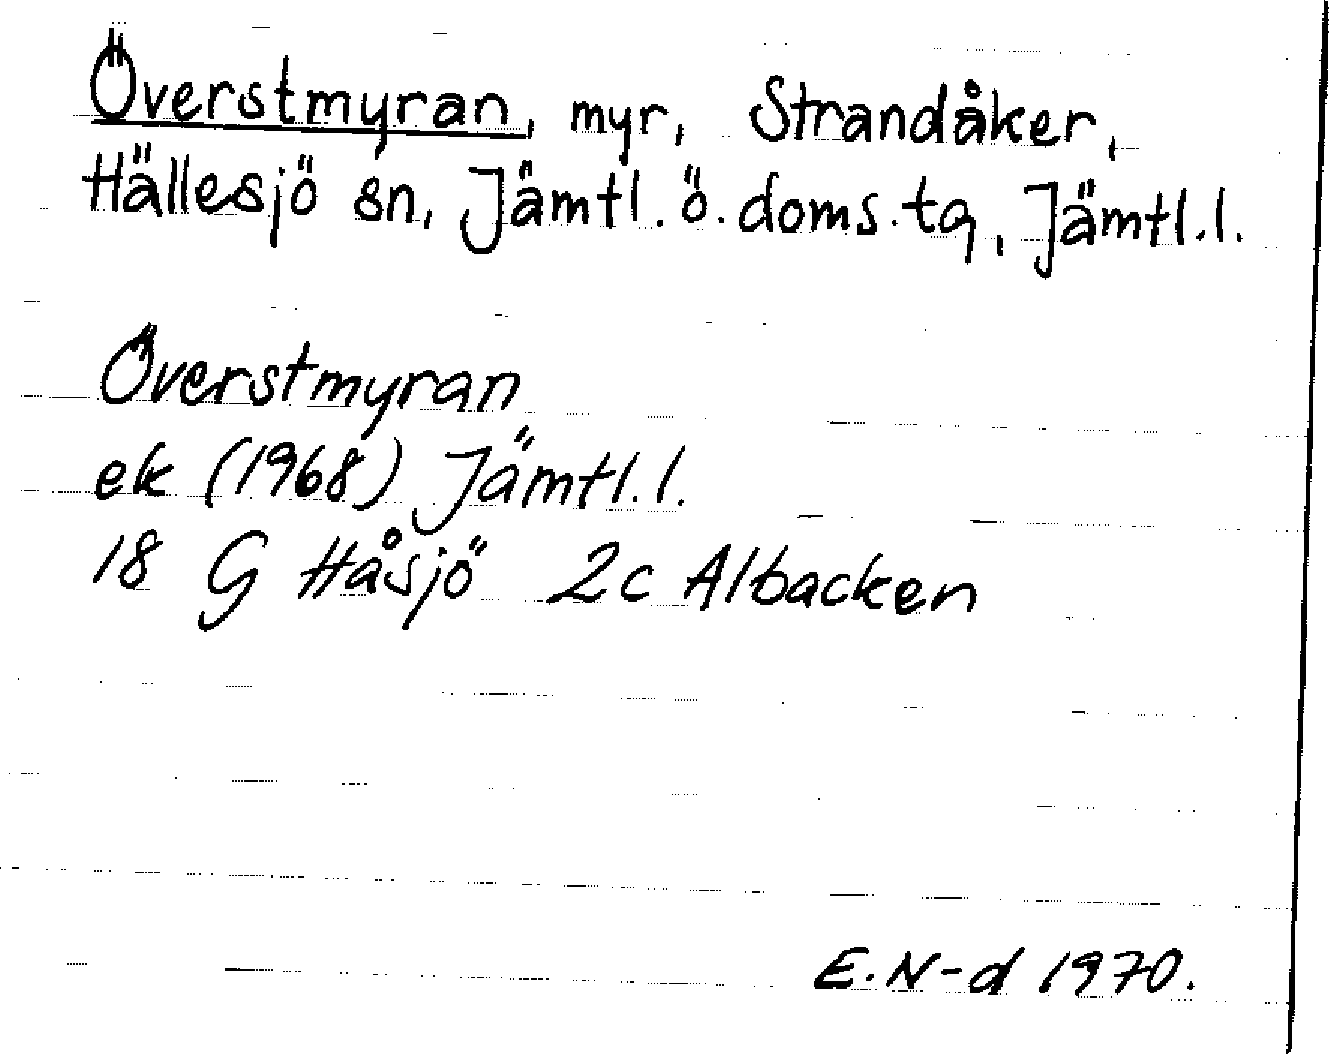 Överstmyran, myr, Strandåker,
Hällesjö sn, Jämtl. ö. doms. tg, Jämtl. l.
Överstmyran
ek (1968) Jämtl. l.
18 G Håsjö 2c Albacken
E. N-d 1970.